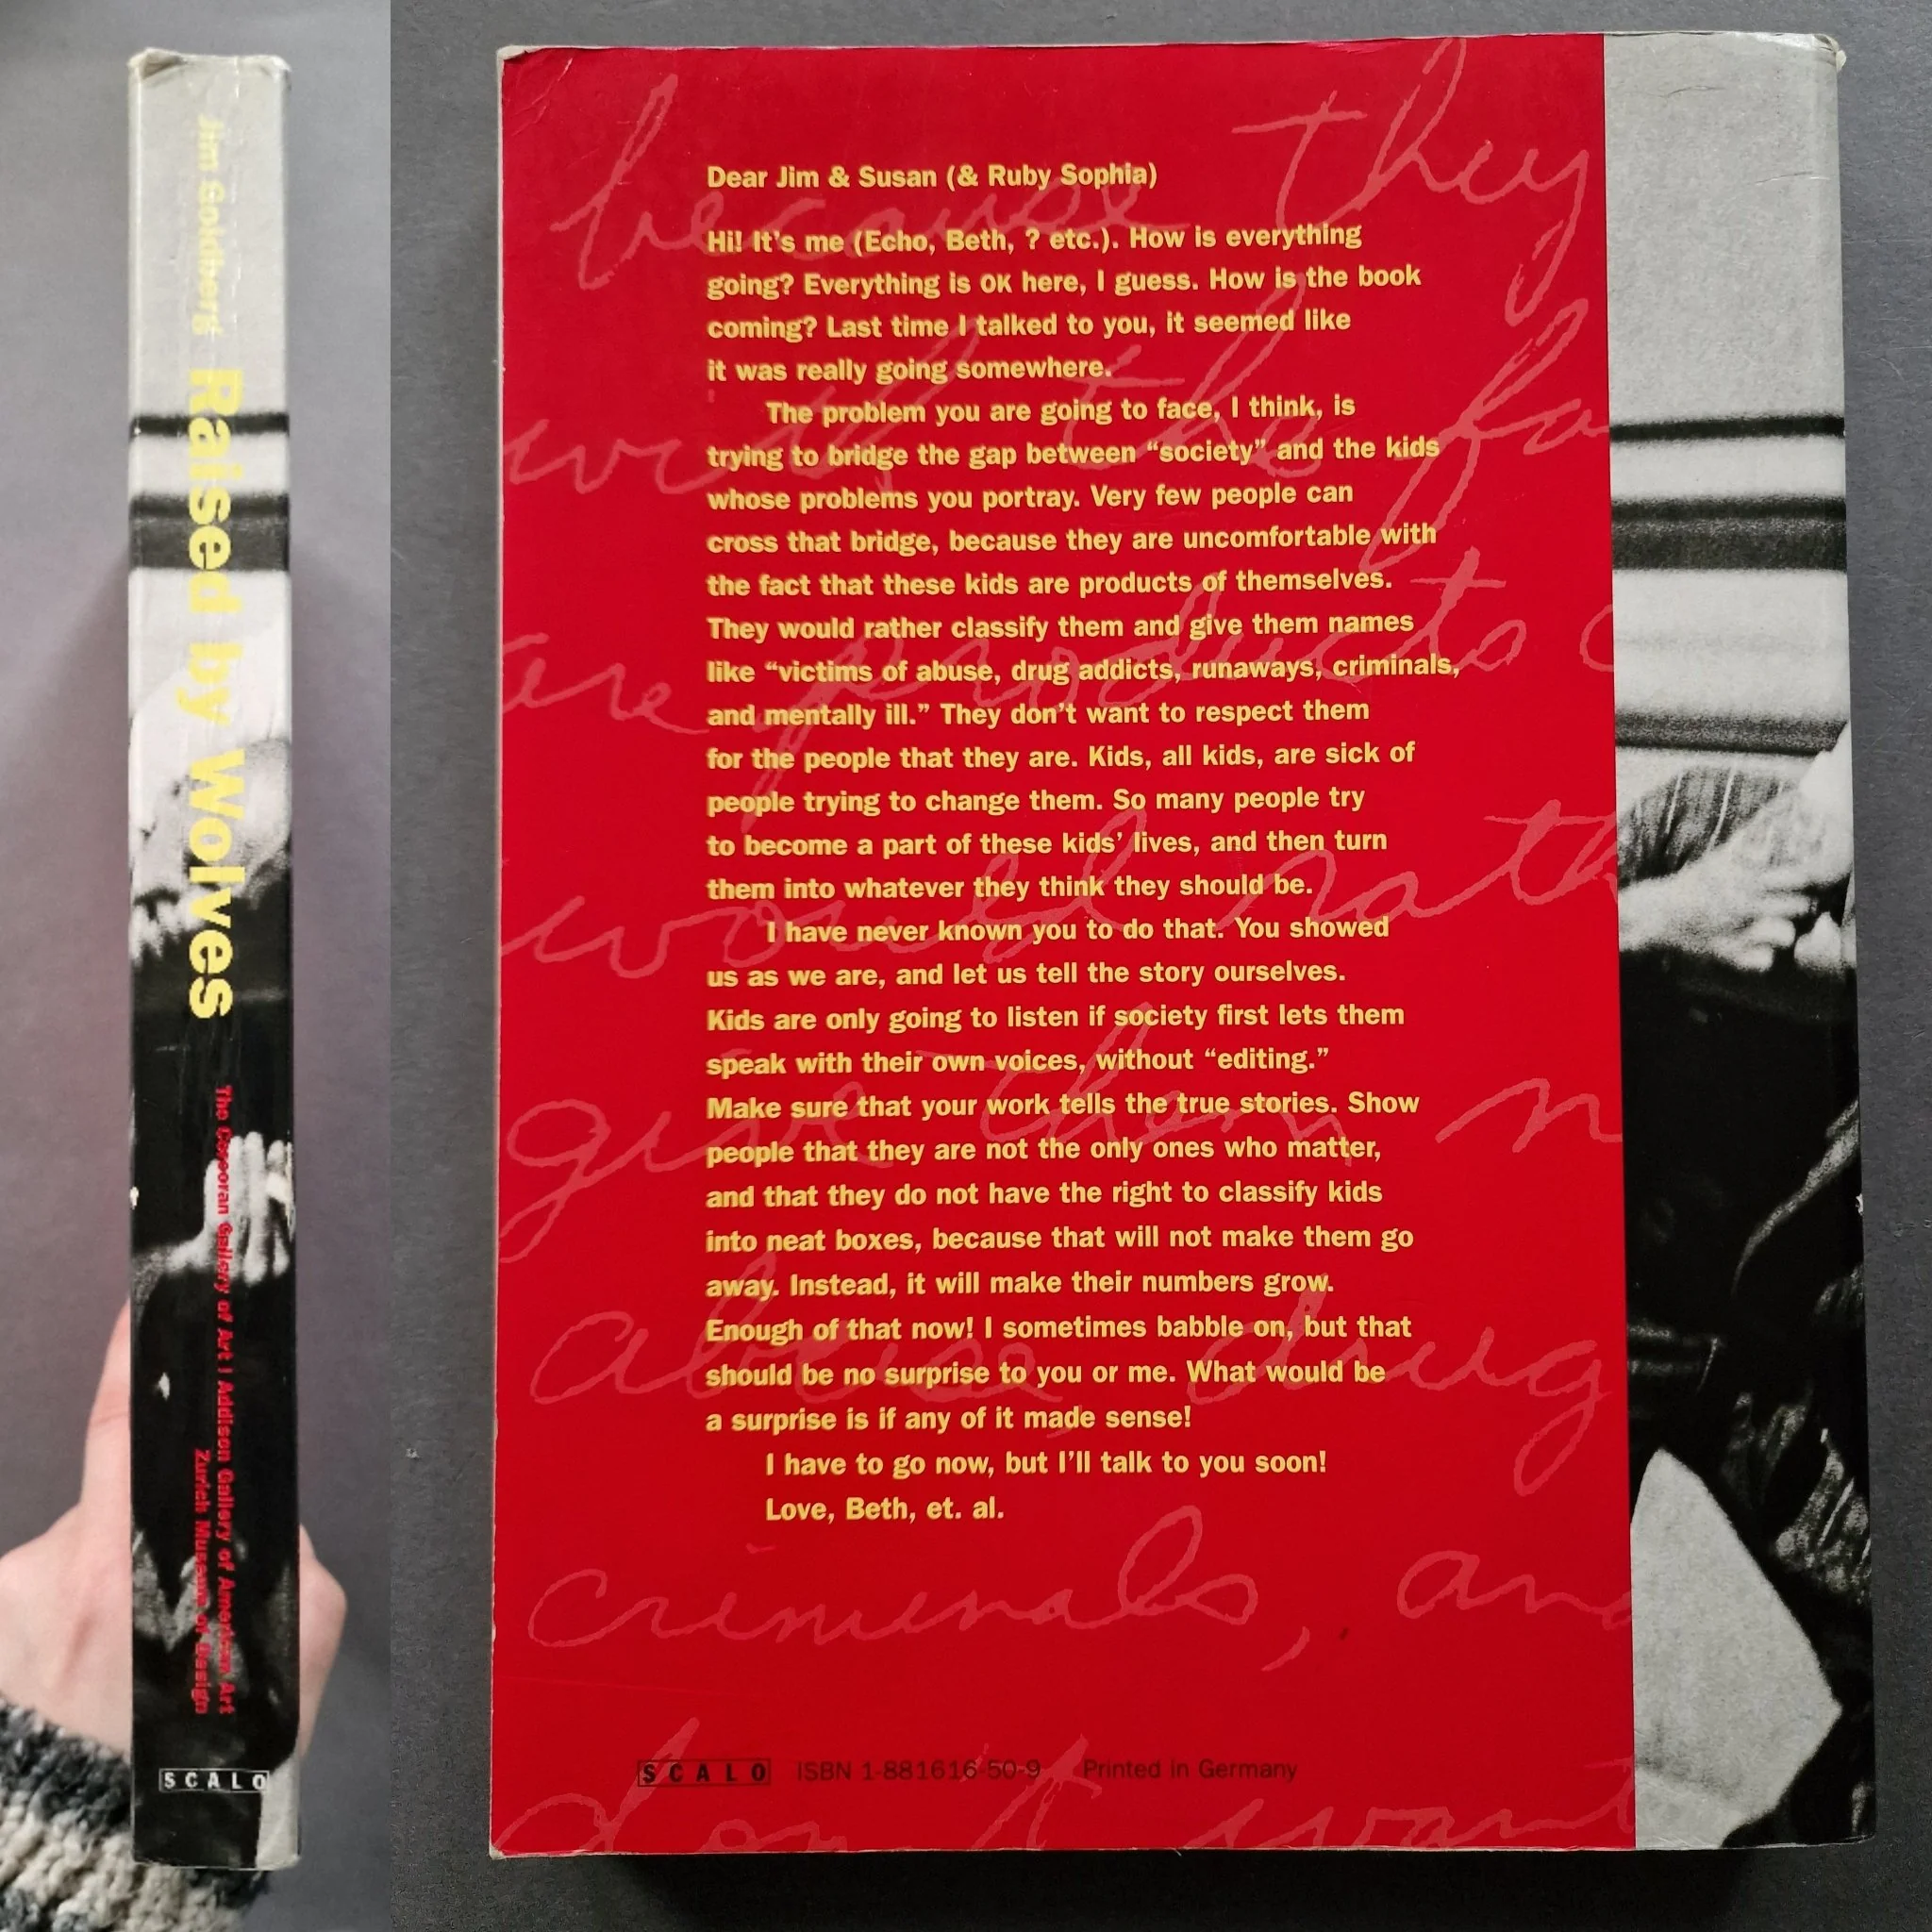 Jim Goldberg Raised by Wolves
The Corcoran Gallery of Art | Addison Gallery of American Art
Zurich Museum of Design
SCALO
Dear Jim & Susan (& Ruby Sophia)
Hi! It's me (Echo, Beth, ? etc.). How is everything
going? Everything is OK here, I guess. How is the book
coming? Last time I talked to you, it seemed like
it was really going somewhere.
The problem you are going to face, I think, is
trying to bridge the gap between “society” and the kids
whose problems you portray. Very few people can
cross that bridge, because they are uncomfortable with
the fact that these kids are products of themselves.
They would rather classify them and give them names
like “victims of abuse, drug addicts, runaways, criminals,
and mentally ill.” They don't want to respect them
for the people that they are. Kids, all kids, are sick of
people trying to change them. So many people try
to become a part of these kids' lives, and then turn
them into whatever they think they should be.
I have never known you to do that. You showed
us as we are, and let us tell the story ourselves.
Kids are only going to listen if society first lets them
speak with their own voices, without “editing.”
Make sure that your work tells the true stories. Show
people that they are not the only ones who matter,
and that they do not have the right to classify kids
into neat boxes, because that will not make them go
away. Instead, it will make their numbers grow.
Enough of that now! I sometimes babble on, but that
should be no surprise to you or me. What would be
a surprise is if any of it made sense!
I have to go now, but I'll talk to you soon!
Love, Beth, et. al.
because they
with the fa
are products o
would rath
give them n
abuse, drug
criminals, and
don't want
SCALO ISBN 1-881616-50-9 Printed in Germany